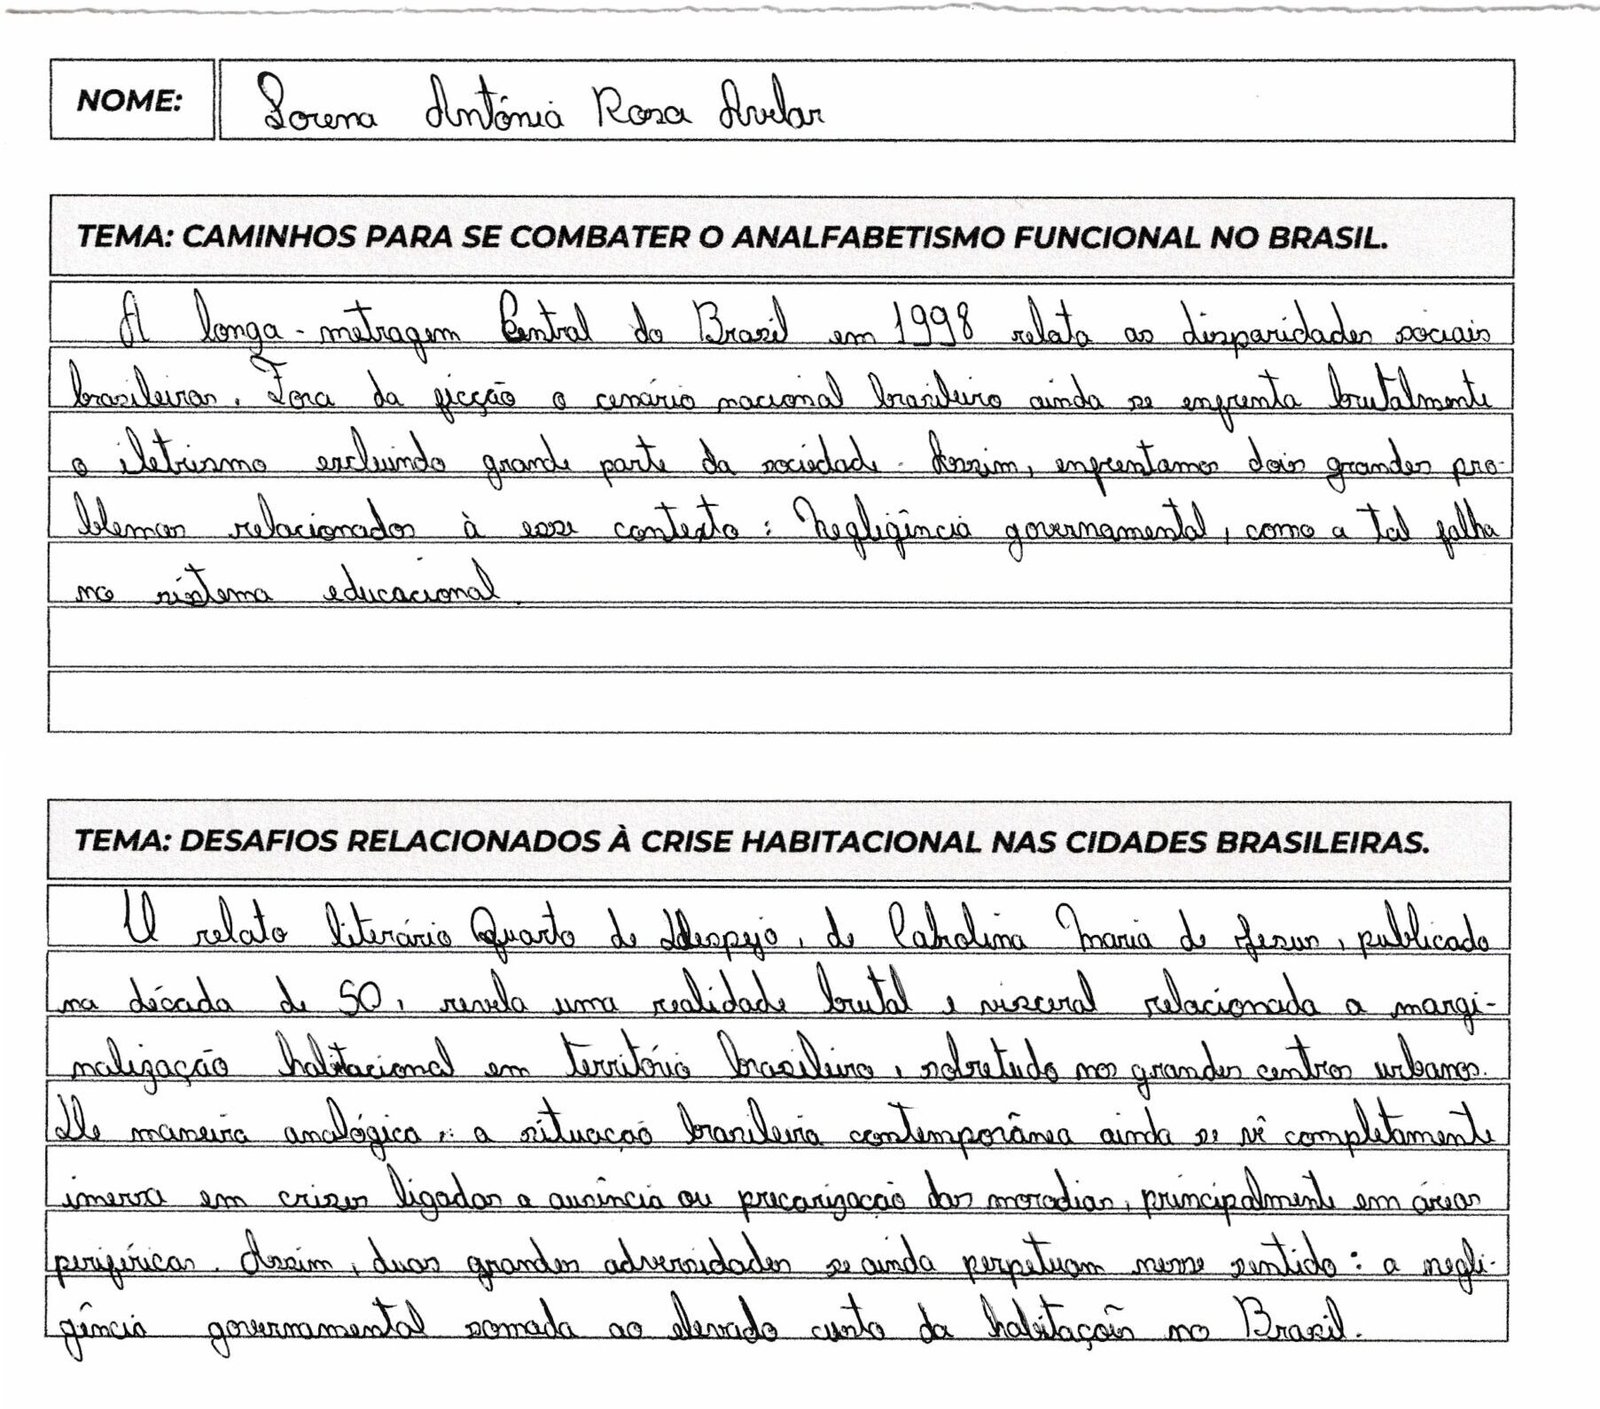 NOME: Lorena Antônia Rosa Avelar
TEMA: CAMINHOS PARA SE COMBATER O ANALFABETISMO FUNCIONAL NO BRASIL.
A longa-metragem Central do Brasil em 1998 relata as disparidades sociais
brasileiras. Fora da ficção o cenário nacional brasileiro ainda se enfrenta brutalmente
o iletrismo excluindo grande parte da sociedade. Assim, enfrentamos dois grandes pro-
blemas relacionados à esse contexto: Negligência governamental, como a tal falha
no sistema educacional.
TEMA: DESAFIOS RELACIONADOS À CRISE HABITACIONAL NAS CIDADES BRASILEIRAS.
O relato literário Quarto de Despejo, de Carolina Maria de Jesus, publicado
na década de 50, revela uma realidade brutal e visceral relacionada a margi-
nalização habitacional em território brasileiro, sobretudo nos grandes centros urbanos.
De maneira analógica, a situaçaõ brasileira contemporânea ainda se vê completamente
imersa em crises ligadas a ausência ou precarizacaõ das moradias, principalmente em áreas
periféricas. Assim, duas grandes adversidades se ainda perpetuam nesse sentido: a negli-
gência governamental somada ao elevado custo da habitações no Brasil.